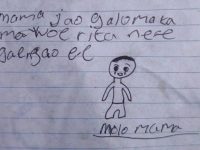 mama jao galomaka
ma woe rita nese
gaengao el
molo mama